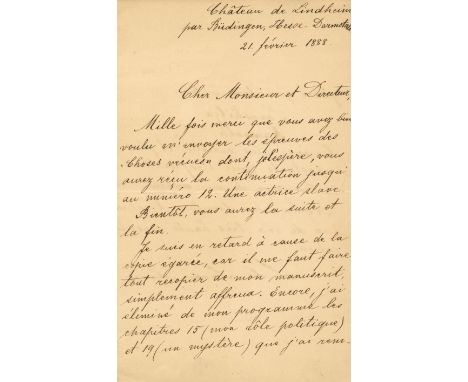 Château de Lindheim
par Büdingen, Hesse-Darmstad
21 février 1888.
Cher Monsieur et Directeur,
Mille fois merci que vous avez bien
voulu m'envoyer les épreuves des
Choses vécues dont, j'espère, vous
aurez reçu la continuation jusqu'
au numéro 12. Une actrice slave
Bientôt, vous aurez la suite et
la fin.
Je suis en retard à cause de la
copie égarée, car il me faut faire
tout recopier de mon manuscrit,
simplement affreux. Encore, j'ai
éliminé de mon programme les
chapitres 15 (mon rôle politique)
et 19 (un mystère) que j'ai rem-